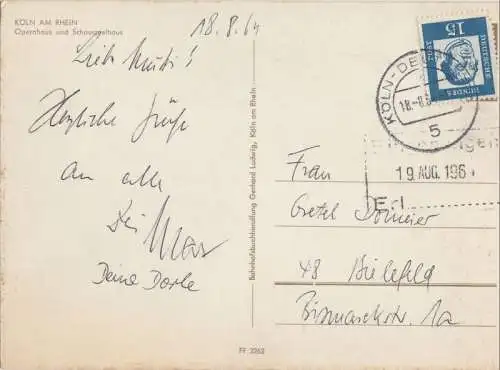 KÖLN AM RHEIN
Opernhaus und Schauspielhaus
18.8.64
Liebe Mutti!
Herzliche Grüße
an alle
Dein Max
Deine Dorle
Bahnhofsbuchhandlung Gerhard Ludwig, Köln am Rhein
FF 2262
15
DEUTSCHE
BUNDES
POST
KÖLN-DE
18.-8.6
5
Eingegangen
19. AUG. 196
Erl.
Frau
Gretel Dormeier
48 Bielefeld
Bismarckstr. 1a